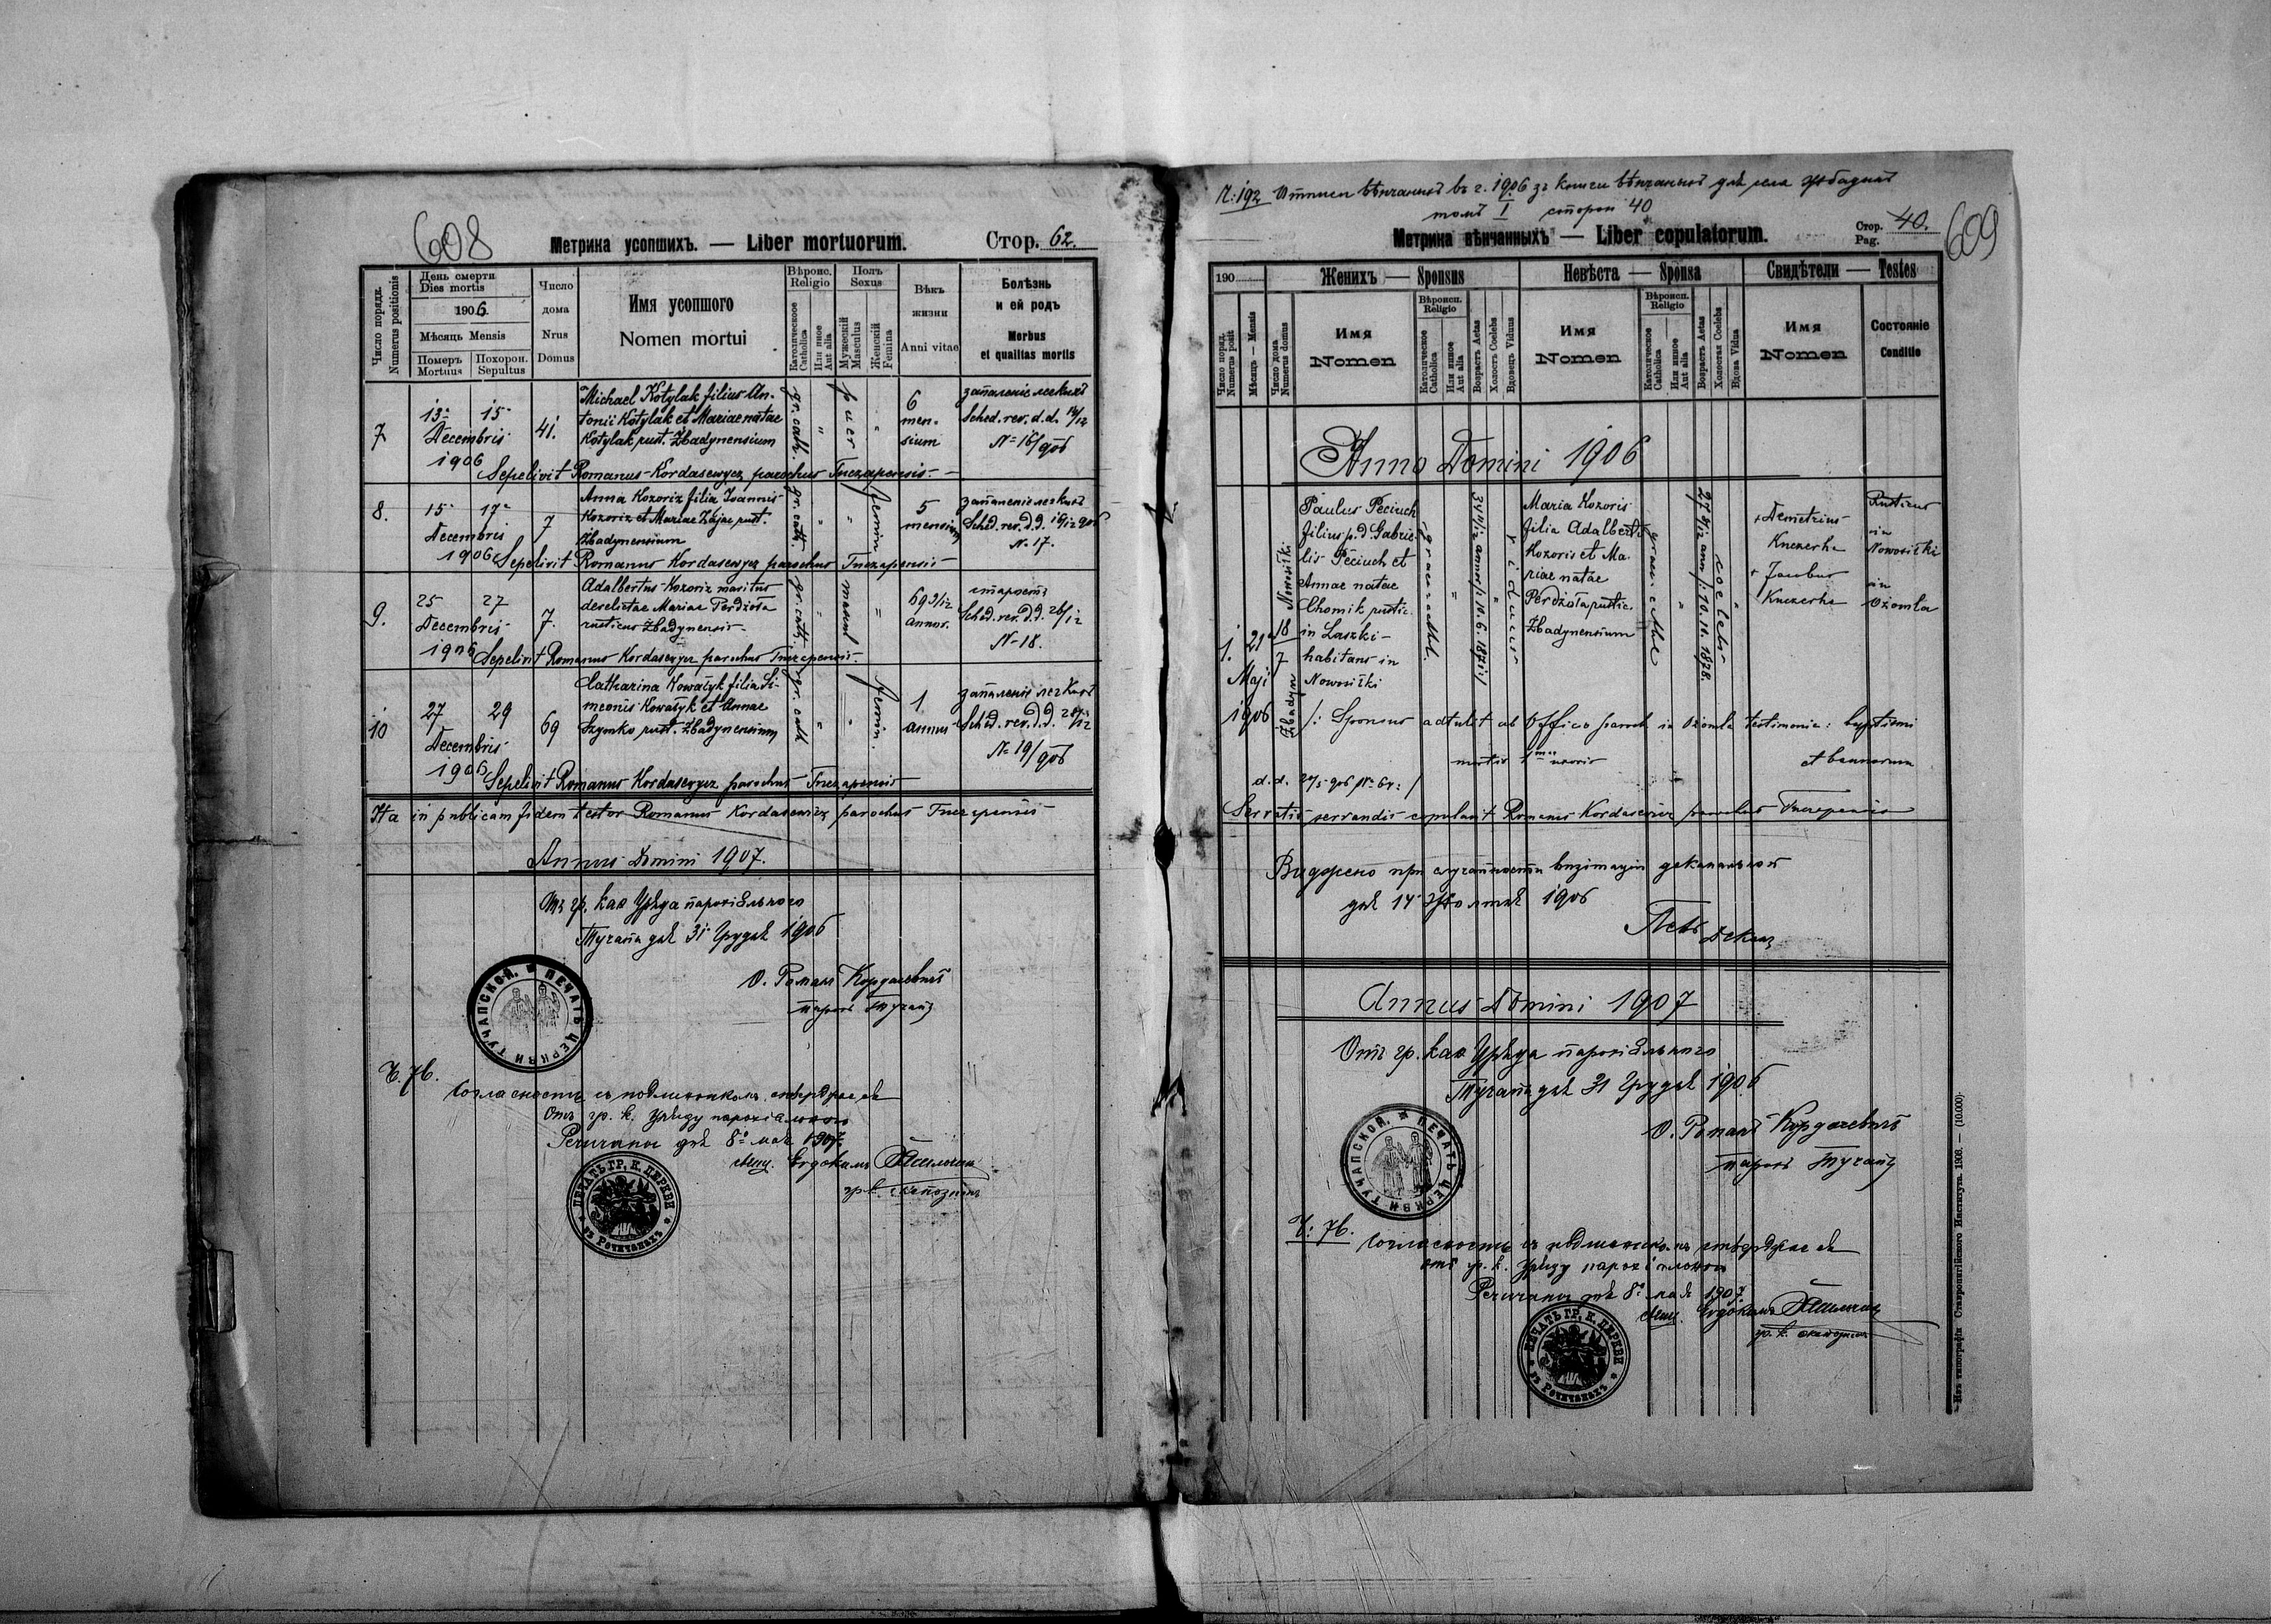 608
Метрика усопшихъ. — Liber mortuorum.
Стор. 62.
Число порядк.
Numerus positionis
День смерти
Dies mortis
1906.
Мѣсяць Mensis
Померъ
Mortuus
Похорон.
Sepultus
Число
дома
Nrus
Domus
Имя усопшого
Nomen mortui
Вѣроис.
Religio
Католическоое
Catholica
Или иное
Aut alia
Полъ
Sexus
Мужескій
Masculus
Женскій
Femina
Вѣкъ
жизни
Anni vitae
Болѣзнь
и ей родъ
Morbus
et qualitas mortis
7
13. 15.
Decembris
1906
41.
Michael Kotylak filius An-
tonii Kotylak et Mariae natae
Kotylak rust. Żbadynensium
gr. cath.
puer
6
men-
sium
Sched. rev. d. d. 14/12
N= 16/906
Sepelivit Romanus Kordasewycz parochus Tuczapensis
8.
15 17
Decembris
1906
7
Anna Kozoriz filia Joannis
Kozoriz et Mariae Zając rust.
Żbadynensium
gr. cath.
femin
5
mensium
N. 17.
Sepelivit Romanus Kordasewycz parochus Tuczapensis
9.
25 27
Decembris
1906
7.
Adalbertus Kozoriz maritus
derelictae Mariae Perdżoła
rusticus Żbadynensis
gr. cath.
mascul
69 3/12
annor.
старость
Sched. rev. d. d. 26/12
N- 18.
Sepelivit Romanus Kordasewycz parochus Tuczapensis.
10
27 29
Decembris
1906
69
Catharina Kowalyk filia Si-
meonis Kowalyk et Annae
Szymko rust. Żbadynensium
gr. cath
femin.
1
annus
N= 19/906
Sepelivit Romanus Kordasewycz parochus Tuczapensis
Ita in publicam fidem testor Romanus Kordasewicz parochus Tuczapensis
Annus Domini 1907.
Отъ гр. кат Уряда парохіяльного
Тучапы дня 31 Грудня 1906
О. Романъ Кордасевичъ
парохъ Тучапъ
ПЕЧАТЬ ЦЕРКВИ ТУЧАПСКОЙ.
Ч. 76.
Согласность съ подлинникомъ стверджае ся
Отъ гр. к. Уряду парохіяльного
Речичаны дня 8 мая 1907.
свящ. Евдокимъ
ПЕЧАТЬ ГР. К. ЦЕРКВИ въ Речичанахъ
609
Ч: 192 Отписи вѣнчанныхъ въ г. 1906 зъ книги вѣнчанныхъ для села
томъ I сторон 40
Метрика вѣнчанныхъ — Liber copulatorum.
Стор.
Pag.
40.
190
Число поряд.
Numerus posit
Мѣсяць — Mensis
Число дома
Numerus domus
Женихъ — Sponsus
Имя
Nomen
Вѣроисп.
Religio
Католическое
Catholica
Или иноое
Aut alia
Возрастъ Aetas
Холостъ Coelebs
Вдовецъ Viduus
Невѣста — Sponsa
Имя
Nomen
Вѣроисп.
Religio
Католическое
Catholica
Или иноое
Aut alia
Возрастъ Aetas
Холостая Coelebs
Вдова Vidua
Свидѣтели — Testes
Имя
Nomen
Состояніе
Conditio
Anno Domini 1906
1.
21
Maji
1906
18
7
Paulus Peciuch
filius p. d. Gabrie-
lis Peciuch et
Annae natae
Chomik rustic.
in Laszki
habitans in
Nowosiłki
viduus
Maria Kozoris
filia Adalberti
Kozoris et Ma-
riae natae
Perdżoła rustic.
Żbadynensium
coelebs
+ Demetrius
+ Jacobus
Rusticus
in
Nowosiłki
in
Ożomla
/: Sponsus adtulit ab Officio paroch in Ożomla testimonia: baptismi
mortis 1mae uxoris et bannorum
Servatis servandis copulavit Romanus Kordasewicz parochus Tuczapensis
Виджено при случайности визитаціи деканальной
1906
Деканъ
Annus Domini 1907
Отъ гр. кат Уряда парохіяльного
Тучапы дня 31 Грудня 1906
О. Романъ Кордасевичъ
парохъ Тучапъ
ПЕЧАТЬ ЦЕРКВИ ТУЧАПСКОЙ.
Ч: 76.
Согласность съ подлинникомъ стверджае ся
отъ гр. к. Уряду парохіяльного
Речичаны дня 8 мая 1907.
свящ. Евдокимъ
ПЕЧАТЬ ГР. К. ЦЕРКВИ въ Речичанахъ
Изъ типографіи Ставропигійского Института. 1906. — (10.000)